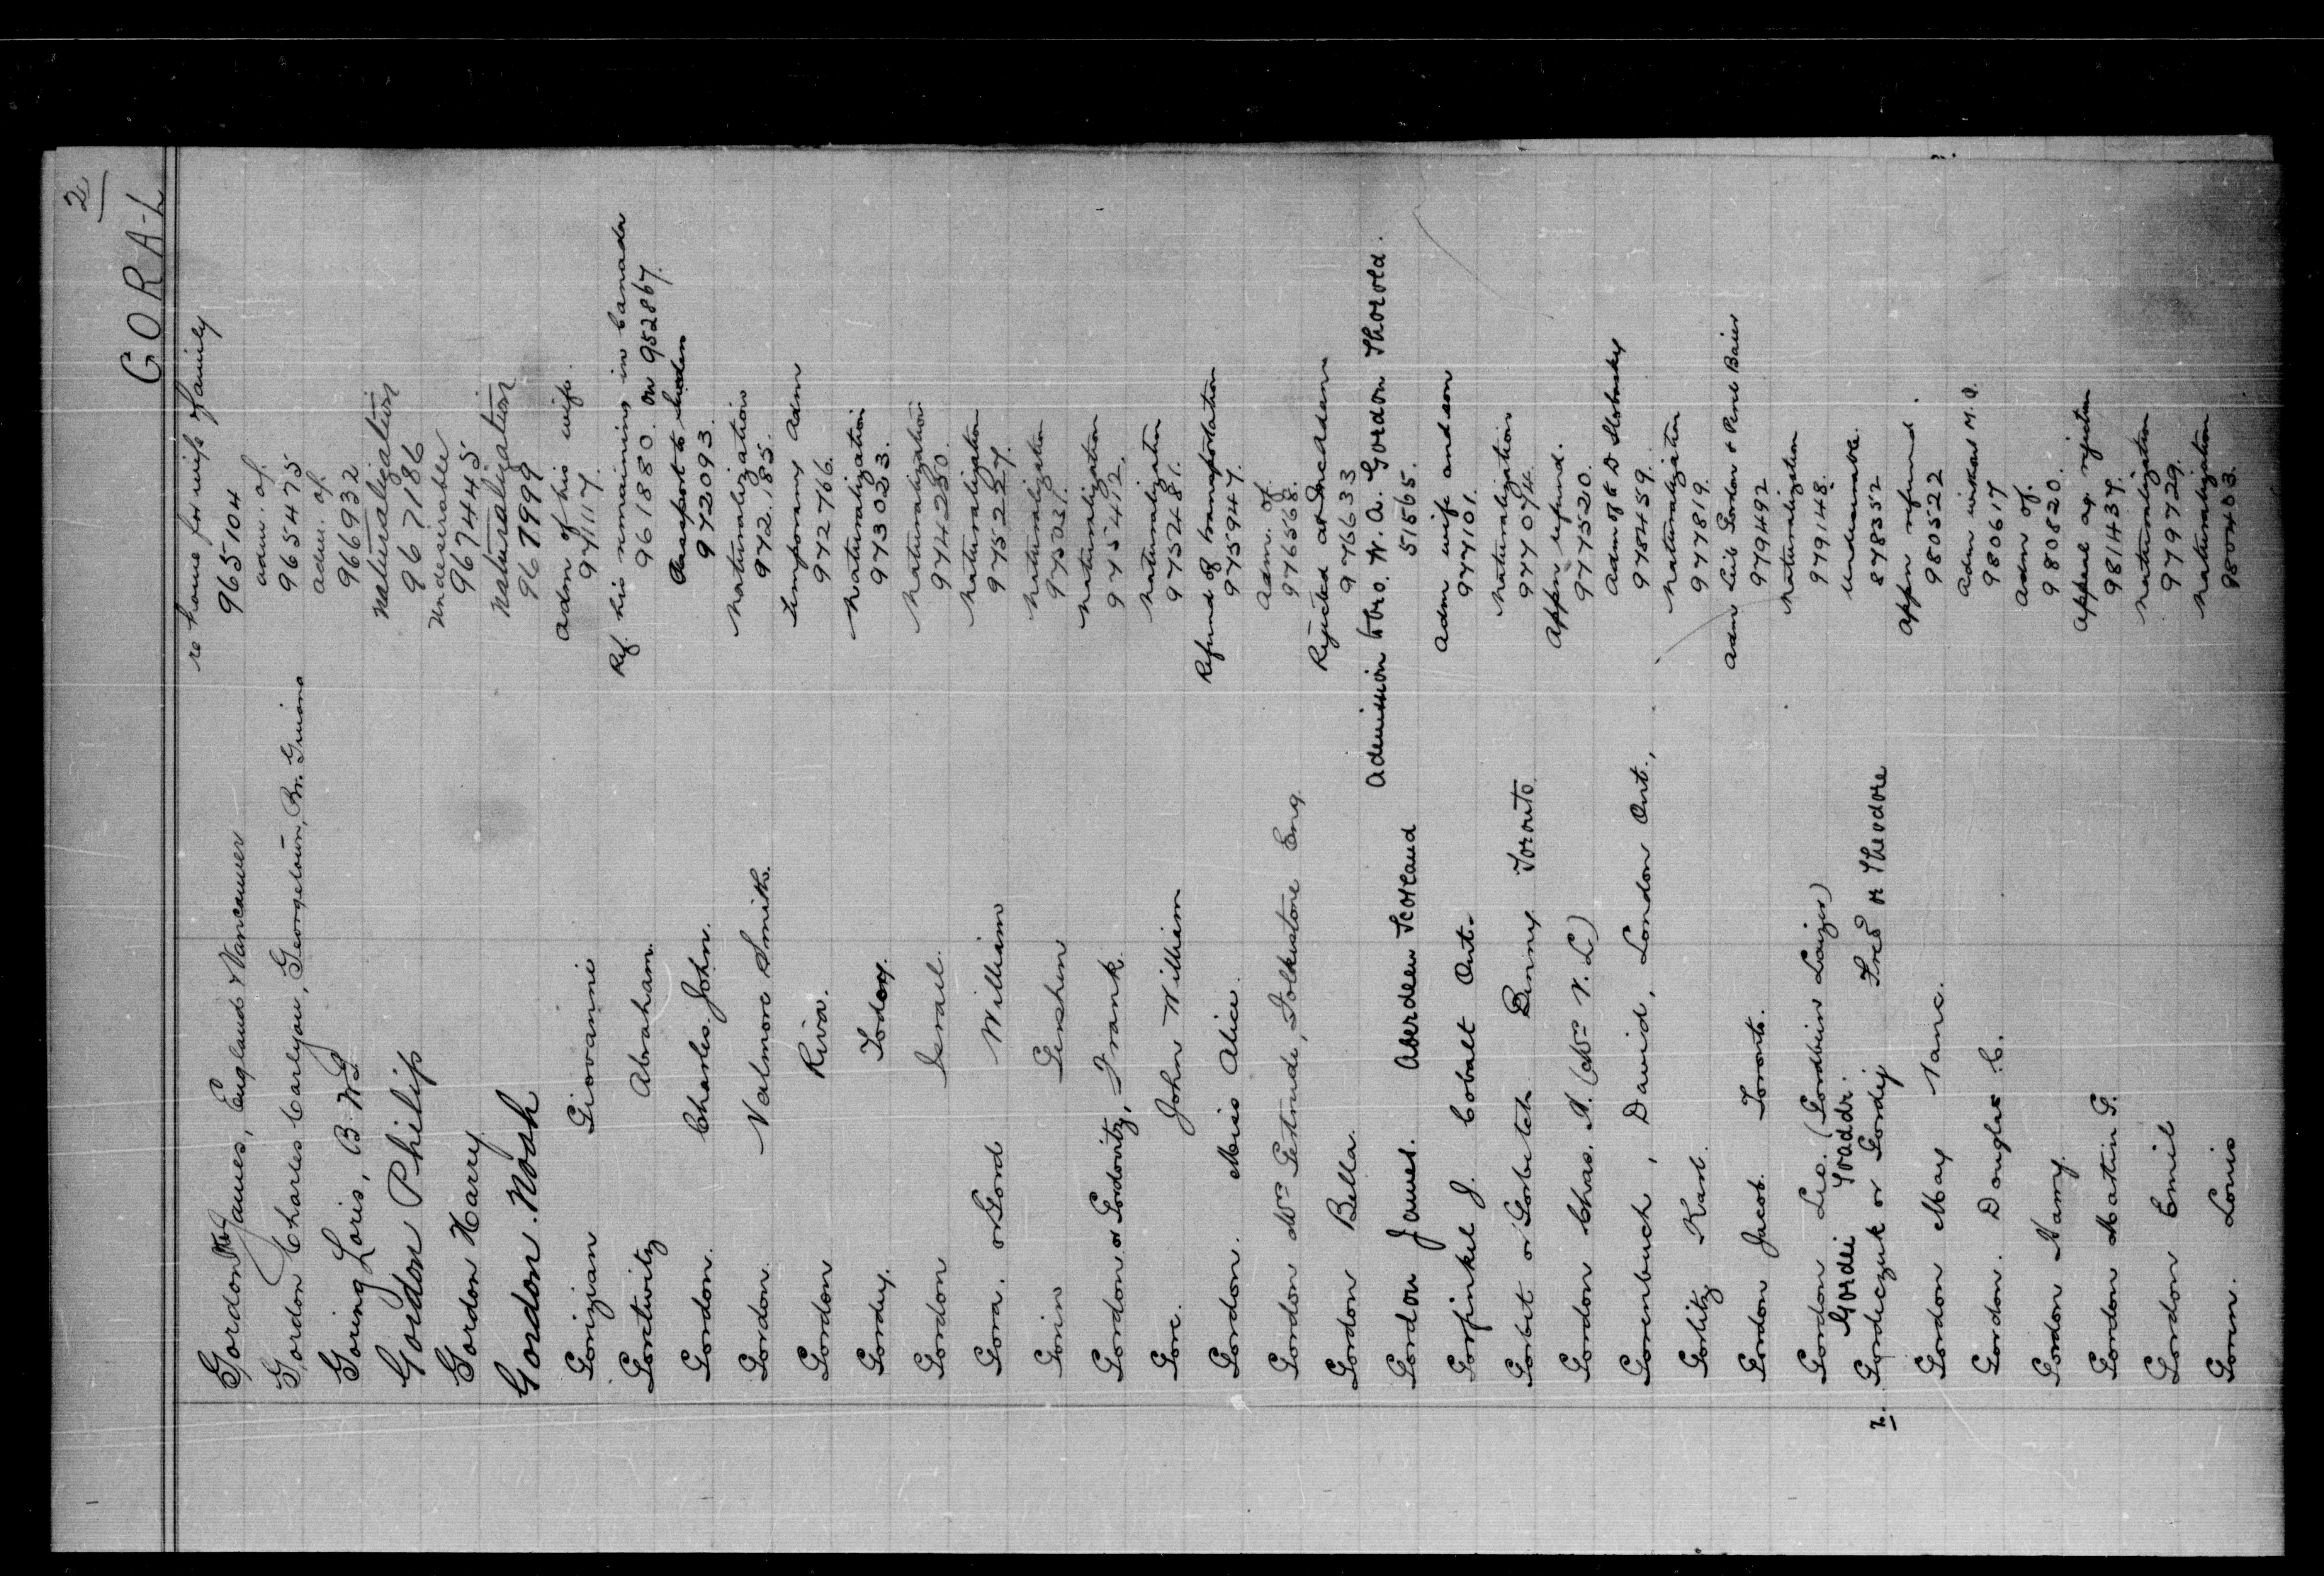 2
GORA-L
re home for wife & family
Gordon James, England & Vancouver 965104
adm. of.
Gordon Charles Carlyon, Georgetown, Br. Guiana 965475
adm. of.
Goring Loris, B.W.I. 966932
Naturalization
Gordon Philip 967186
Undesirable
Gordon Harry 967445
Naturalization
Gordon. Noah 967999
Adm of his wife.
Gorizian Giovannie 971117.
Ref. his remaining in Canada
Gorctwitz Abraham. 961880. on 952867.
Passport to
Gordon. Charles John. 972093.
Naturalization
Gordon. Valmore Smith. 972185.
Temporary Adm
Gordon Riva. 972766.
Naturalization
Gordey. Todory. 973023.
Naturalization
Gordon Israel. 974250.
Naturalization
Gora. or Gord William 975227.
Naturalization
Gorin Gershen 975031.
Naturalization
Gordon or Gordovitz, Frank. 975412.
Naturalization
Gore. John William 975481.
Refund of transportation
Gordon. Miss Alice. 975947.
Adm. of.
Gordon Mrs Gertrude, Folkestone Eng. 976568.
Rejected at McAdam
Gordon Bella. 976633
Admission to bro. W. A. Gordon Thorold.
Gordon James. Aberdeen Scotland 51565.
Adm wife and son
Gorfinkel J. Cobalt Ont. 977101.
Naturalization
Gorbet or Gorbetch Benny Toronto. 977074.
Appn refund.
Gordon Chas. A. (Mrs V. L.) 977520.
Adm of & D Slobosky
Gorenbuch, David, London Ont., 978459.
Naturalization
Gorlitz Karl. 977819.
Adm Leib Gordon & Perel Baier
Gordon Jacob. Toronto. 979492
Naturalization
Gordon Leo. (Gordbein Laizer) 979148.
Gordei Toaddr. Undesirable.
Gordieczuk or Gordij Fred or Theodore 878352
Appn refund.
Gordon May Vanc. 980522
Adm without M.O.
Gordon. Douglas C. 980617
Adm of.
Gordon Mamy. 980820.
Appeal ag. rejection
Gordon Martin G. 981437.
Naturalization
Gordon Emil 979729.
Naturalization
Goren. Louis 980403.